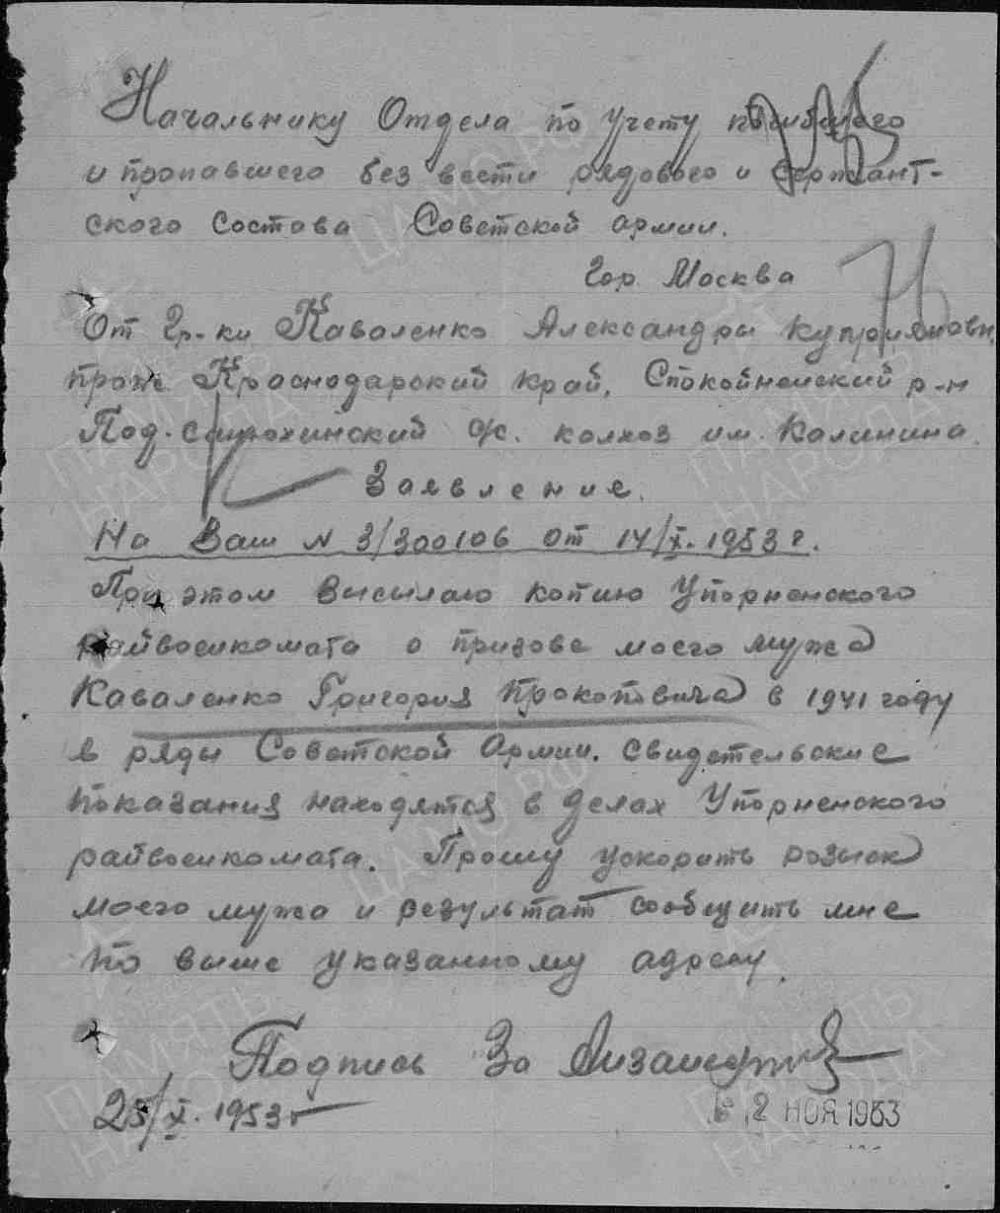 Начальнику Отдела по учету погибшего
и пропавшего без вести рядового и сержант-
ского состава Советской армии.
Гор. Москва
76
От Гр-ки Каваленко Александры Куприяновн.
прож. Краснодарский край, Спокойненский р-н
Под-Синюхинский с/с. колхоз им. Калинина.
Заявление.
На Ваш N 3/300106 от 14/X. 1953 г.
При этом высылаю копию Упорненского
райвоенкомата о призове моего мужа
Каваленко Григория Прокоповича в 1941 году
в ряды Советской Армии. Свидетельские
показания находятся в делах Упорненского
райвоенкомата. Прошу ускорить розыск
моего мужа и результат сообщить мне
по выше указанному адресу.
Подпись За
25/X. 1953 г
2 НОЯ 1953
ПАМЯТЬ НАРОДА
ЦАМО РФ